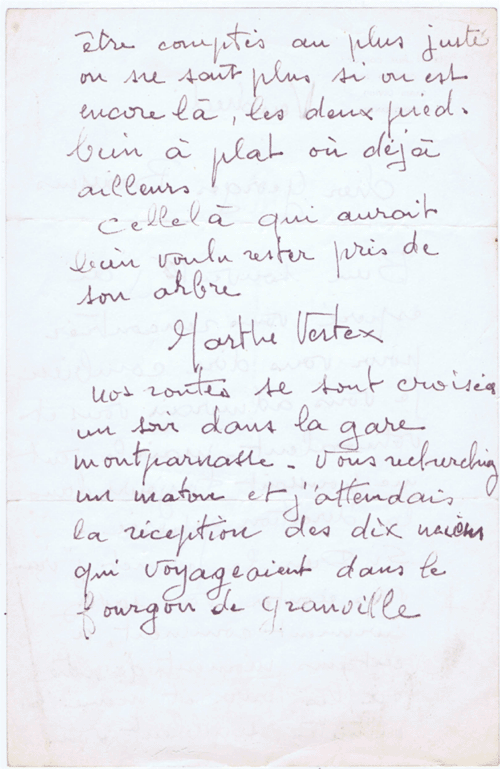 être comptés au plus juste
on ne sait plus si on est
encore là, les deux pied.
bien à plat où déjà
ailleurs
Cellelà qui aurait
bien voulu rester près de
son arbre
Marthe Vertex
nos routes se sont croisées
un soir dans la gare
montparnasse - Vous recherchiez
un maton et j'attendais
la réception des dix
qui voyageaient dans le
fourgon de Granville